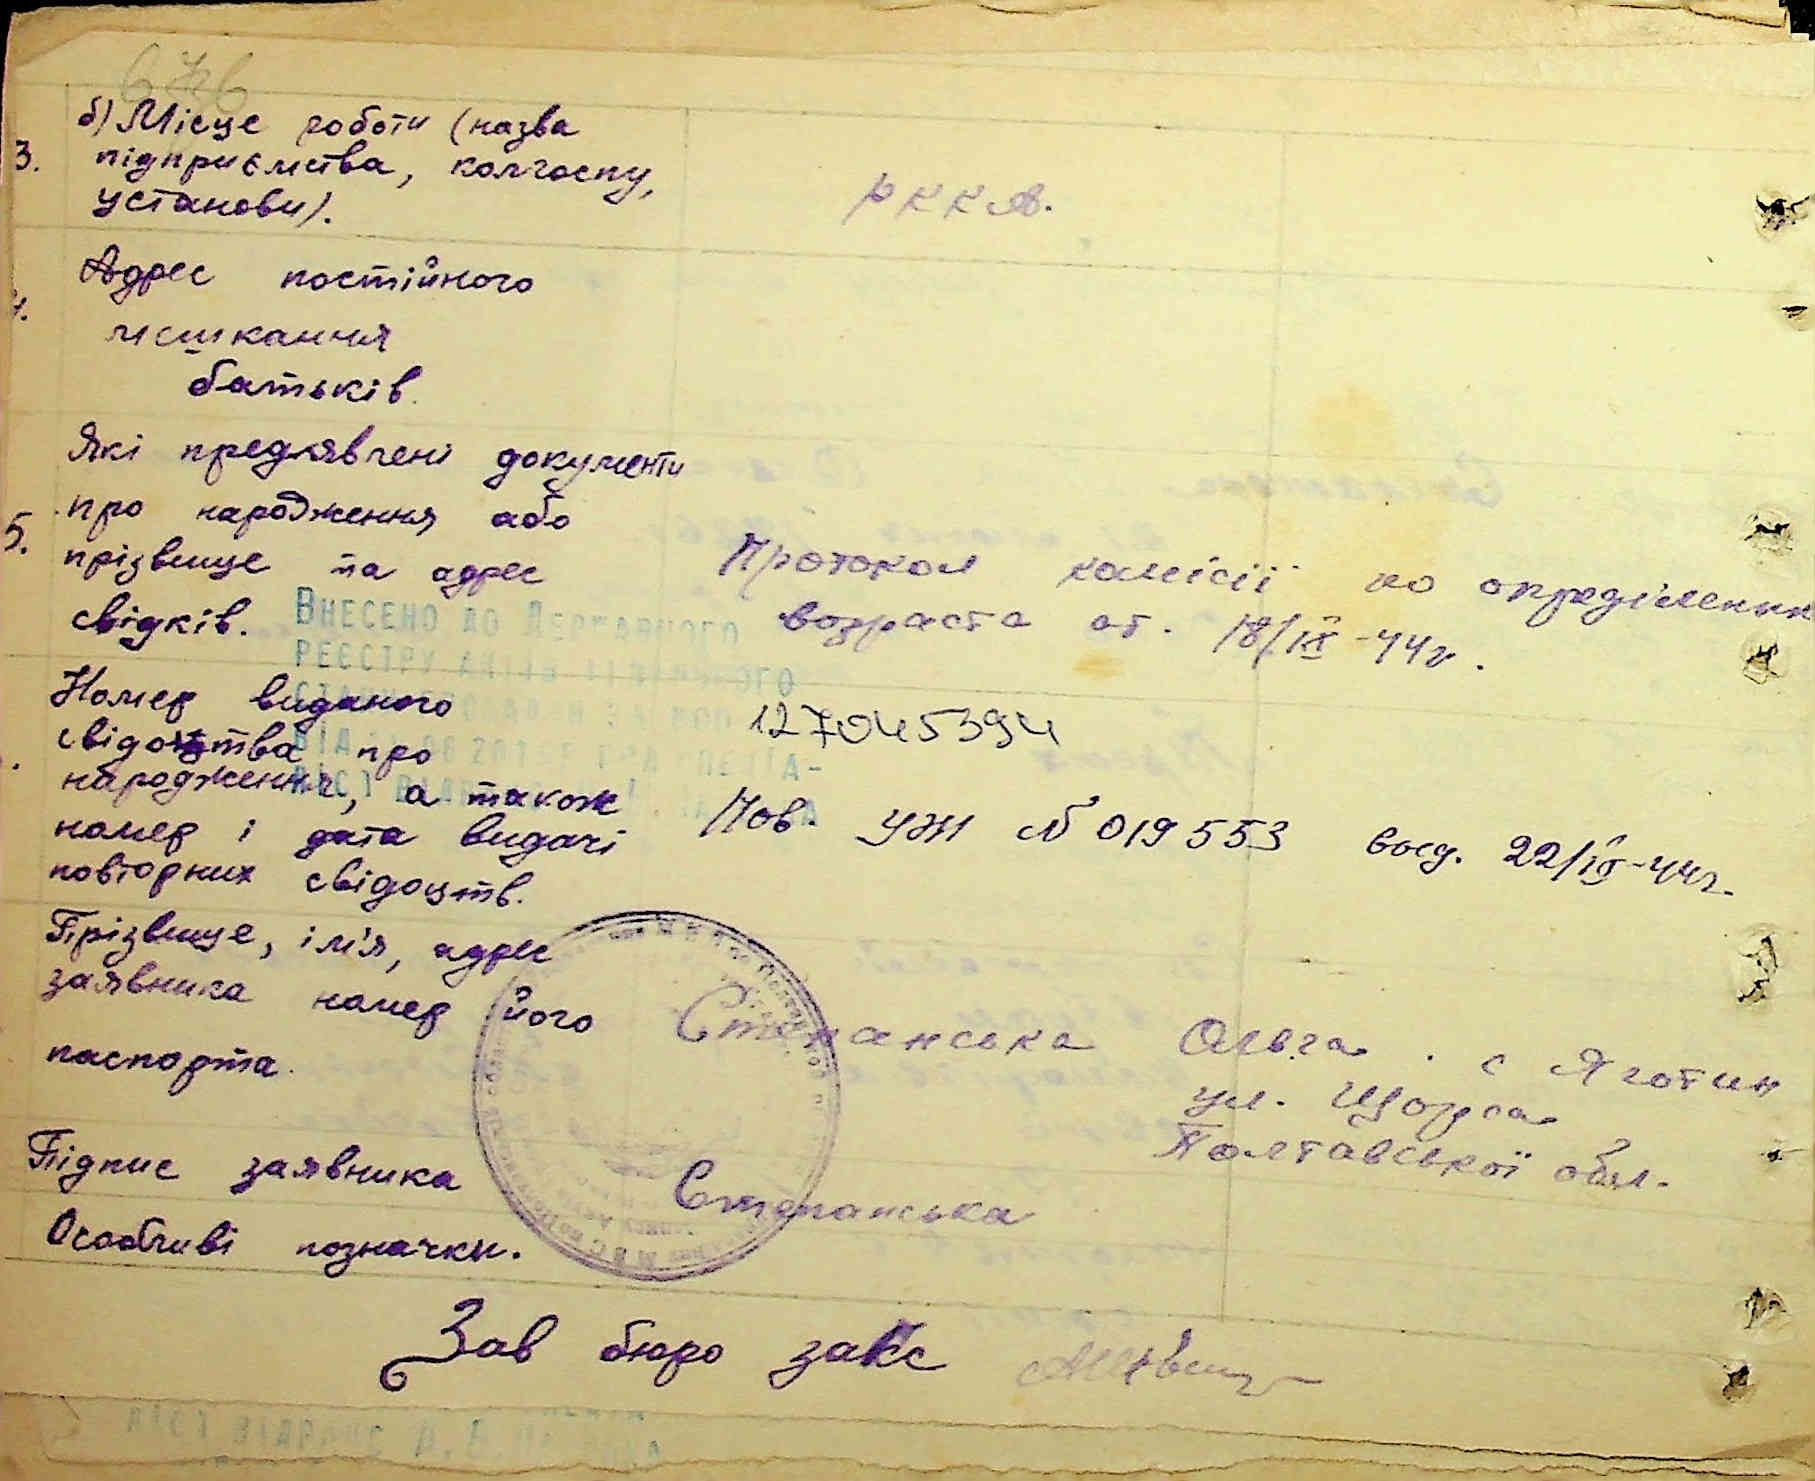 б) Місце роботи (назва
3. підприємства, колгоспу,
установи).
РККА.
Адрес постійного
4.
мешкання
батьків.
Які предлявлені документи
про народження або
5.
прізвище та адрес
свідків.
Протокол комісії по определению
возраста от. 18/IX-44г.
ВНЕСЕНО ДО ДЕРЖАВНОГО
РЕЄСТРУ АКТІВ
Номер виданого
свідоцтва про
народження, а також
номер і дата видачі
повторних свідоцтв.
127045394
Пов. УЖ № 019553 выд. 22/IX-44г.
Прізвище, ім'я, адрес
заявника номер його
паспорта.
Степанська Ольга. с Яготин
ул. Щорса
Полтавської обл.
Підпис заявника
Степанська
Особливі позначки.
Зав бюро закс